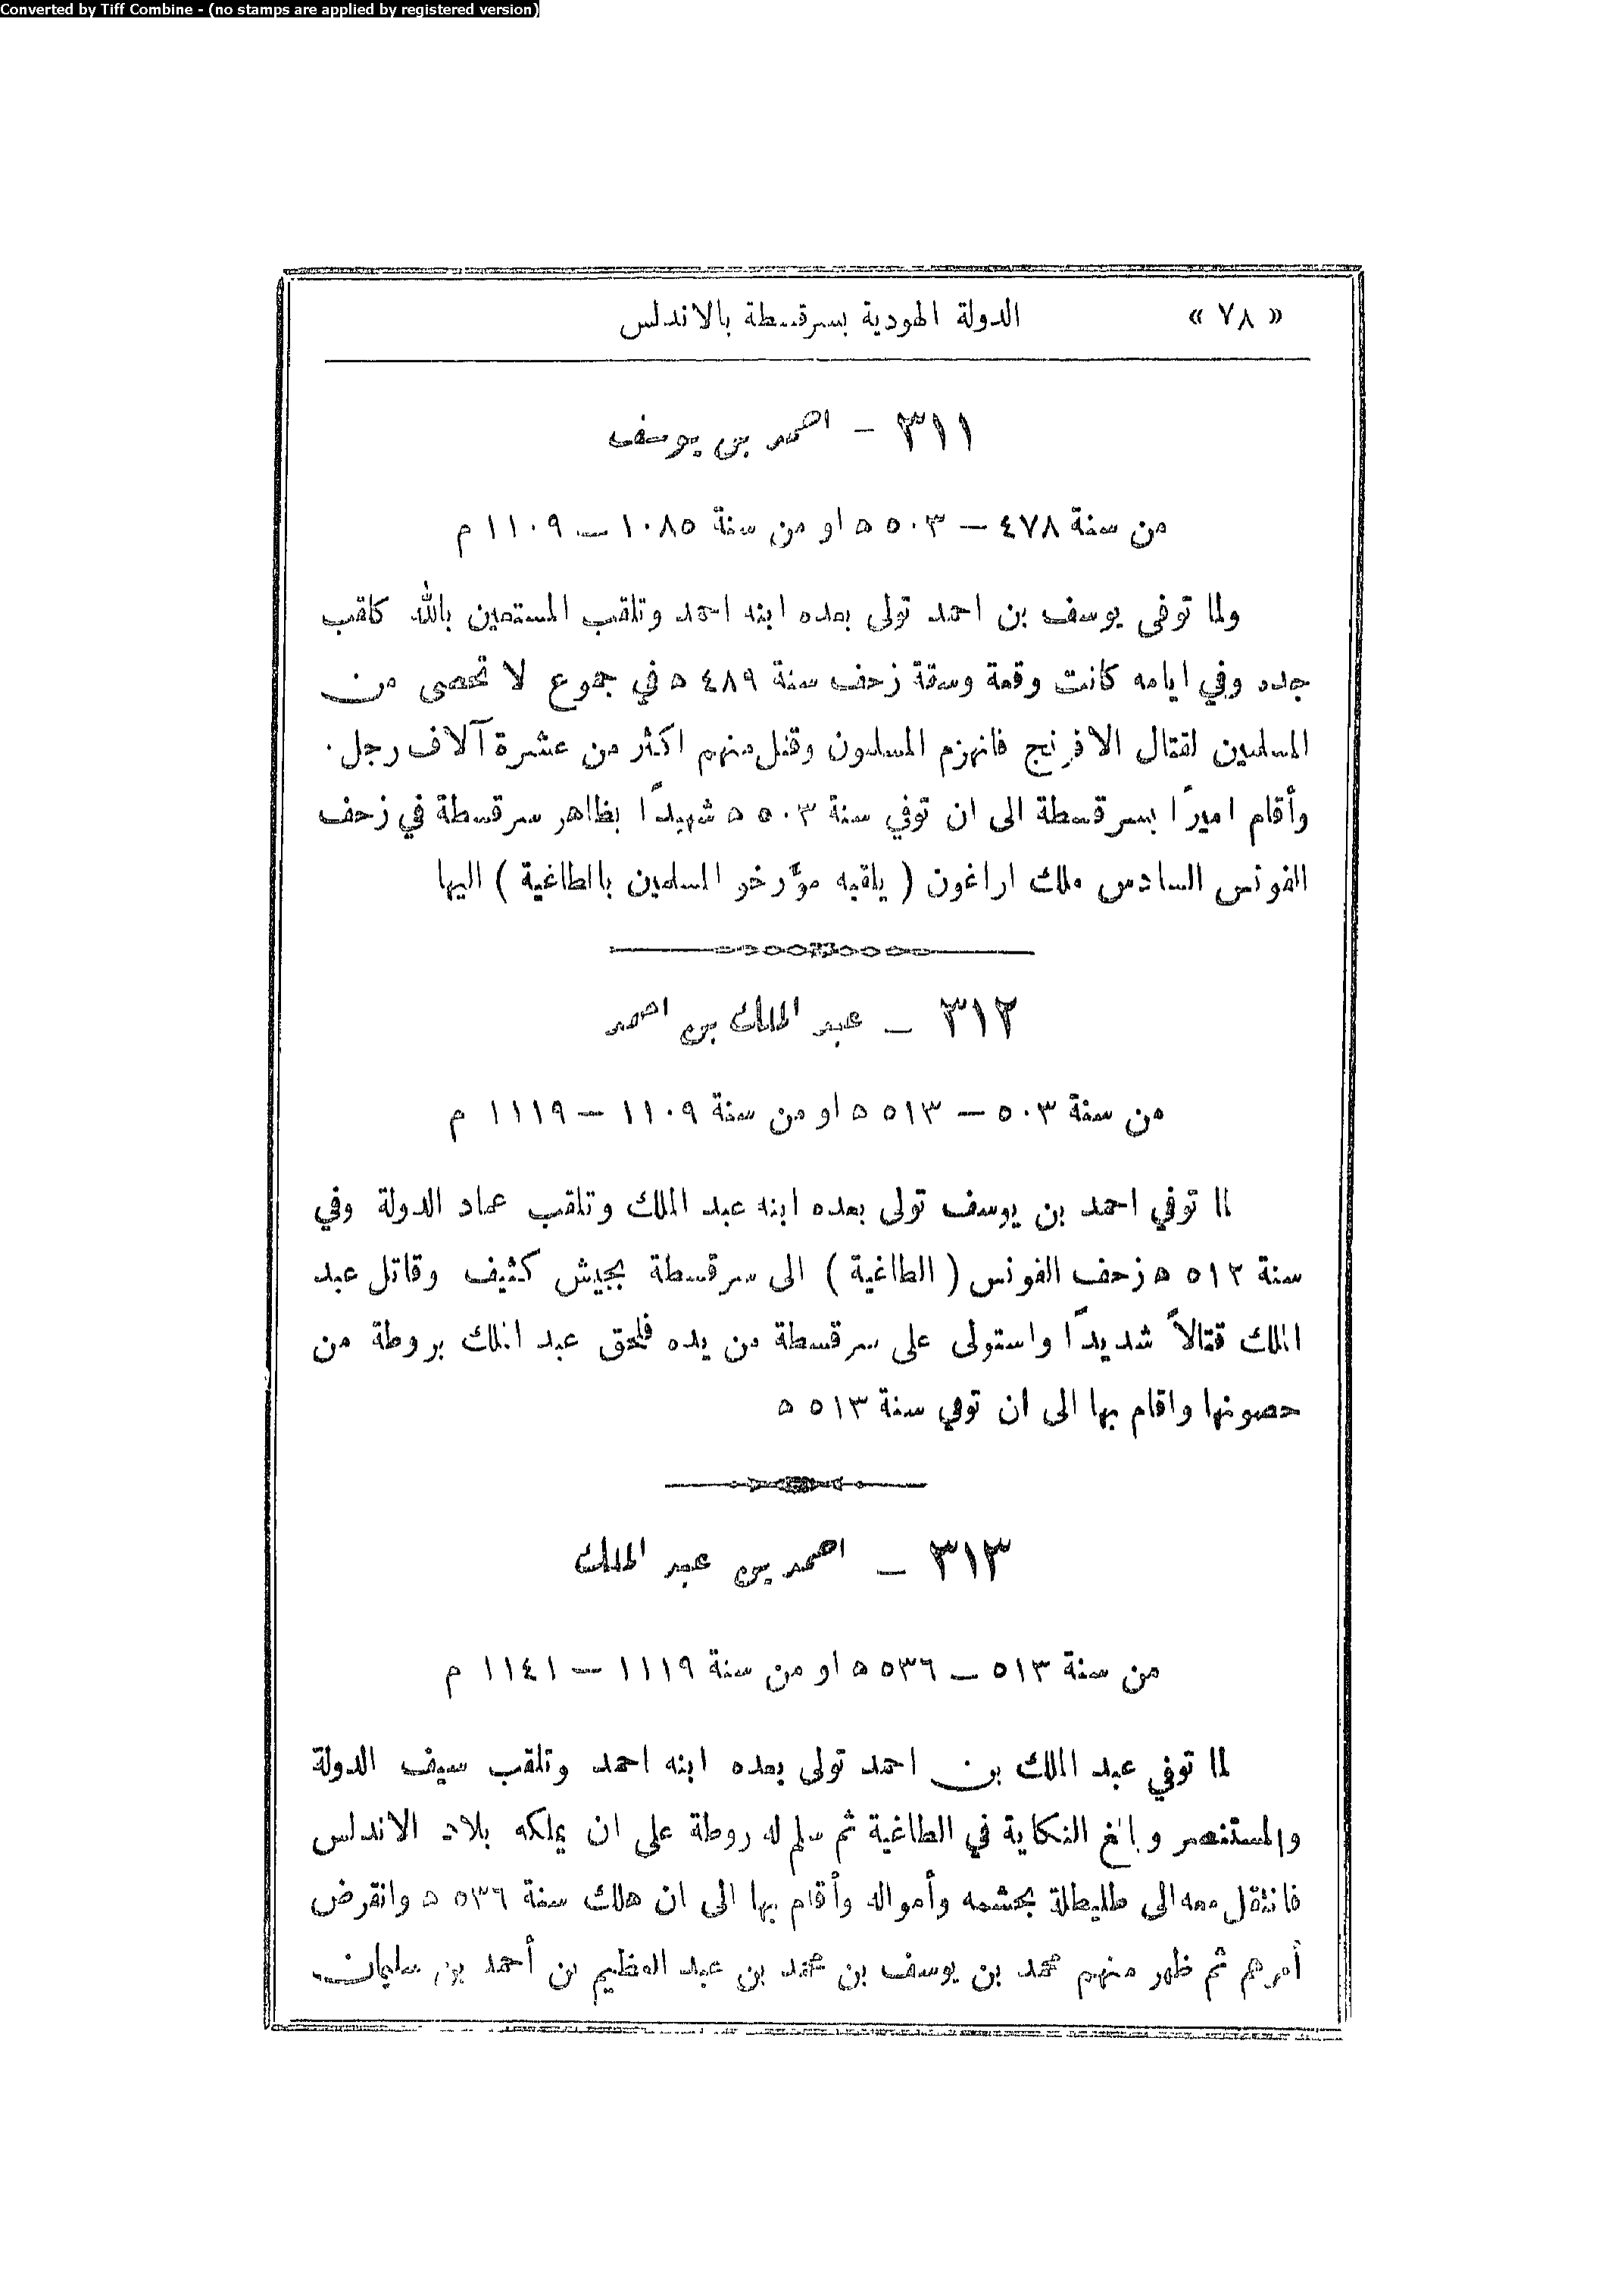 Converted by Tiff Combine - (no stamps are applied by registered version)
« ٧٨ » الدولة الهودية بسرقسطة بالاندلس
٣١١ – احمد بن يوسف
من سنة ٤٧٨ – ٥٠٣ ه او من سنة ١٠٨٥ – ١١٠٩ م
ولما توفى يوسف بن احمد تولى بعده ابنه احمد وتلقب المستعين بالله كلقب
جده وفي ايامه كانت وقعة وسقة زحف سنة ٤٨٩ ه في جموع لا تحصى من
المسلمين لقتال الافرنج فانهزم المسلمون وقتل منهم اكثر من عشرة آلاف رجل ٠
وأقام اميرًا بسرقسطة الى ان توفي سنة ٥٠٣ ه شهيدًا بظاهر سرقسطة في زحف
الفونس السادس ملك اراغون ( يلقبه مؤرخو المسلمين بالطاغية ) اليها
٣١٢ – عبد الملك بن احمد
من سنة ٥٠٣ – ٥١٣ ه او من سنة ١١٠٩ – ١١١٩ م
لما توفي احمد بن يوسف تولى بعده ابنه عبد الملك وتلقب عماد الدولة وفي
سنة ٥١٢ ه زحف الفونس ( الطاغية ) الى سرقسطة بجيش كثيف وقاتل عبد
الملك قتالاً شديدًا واستولى على سرقسطة من يده فلحق عبد الملك بروطة من
حصونها واقام بها الى ان توفي سنة ٥١٣ ه
٣١٣ – احمد بن عبد الملك
من سنة ٥١٣ – ٥٣٦ ه او من سنة ١١١٩ – ١١٤١ م
لما توفي عبد الملك بن احمد تولى بعده ابنه احمد وتلقب سيف الدولة
والمستنصر وبالغ النكاية في الطاغية ثم سلم له روطة على ان يملكه بلاد الاندلس
فانتقل معه الى طليطلة بحشمه وأمواله وأقام بها الى ان هلك سنة ٥٣٦ ه وانقرض
أمرهم ثم ظهر منهم محمد بن يوسف بن محمد بن عبد العظيم بن أحمد بن سليمان